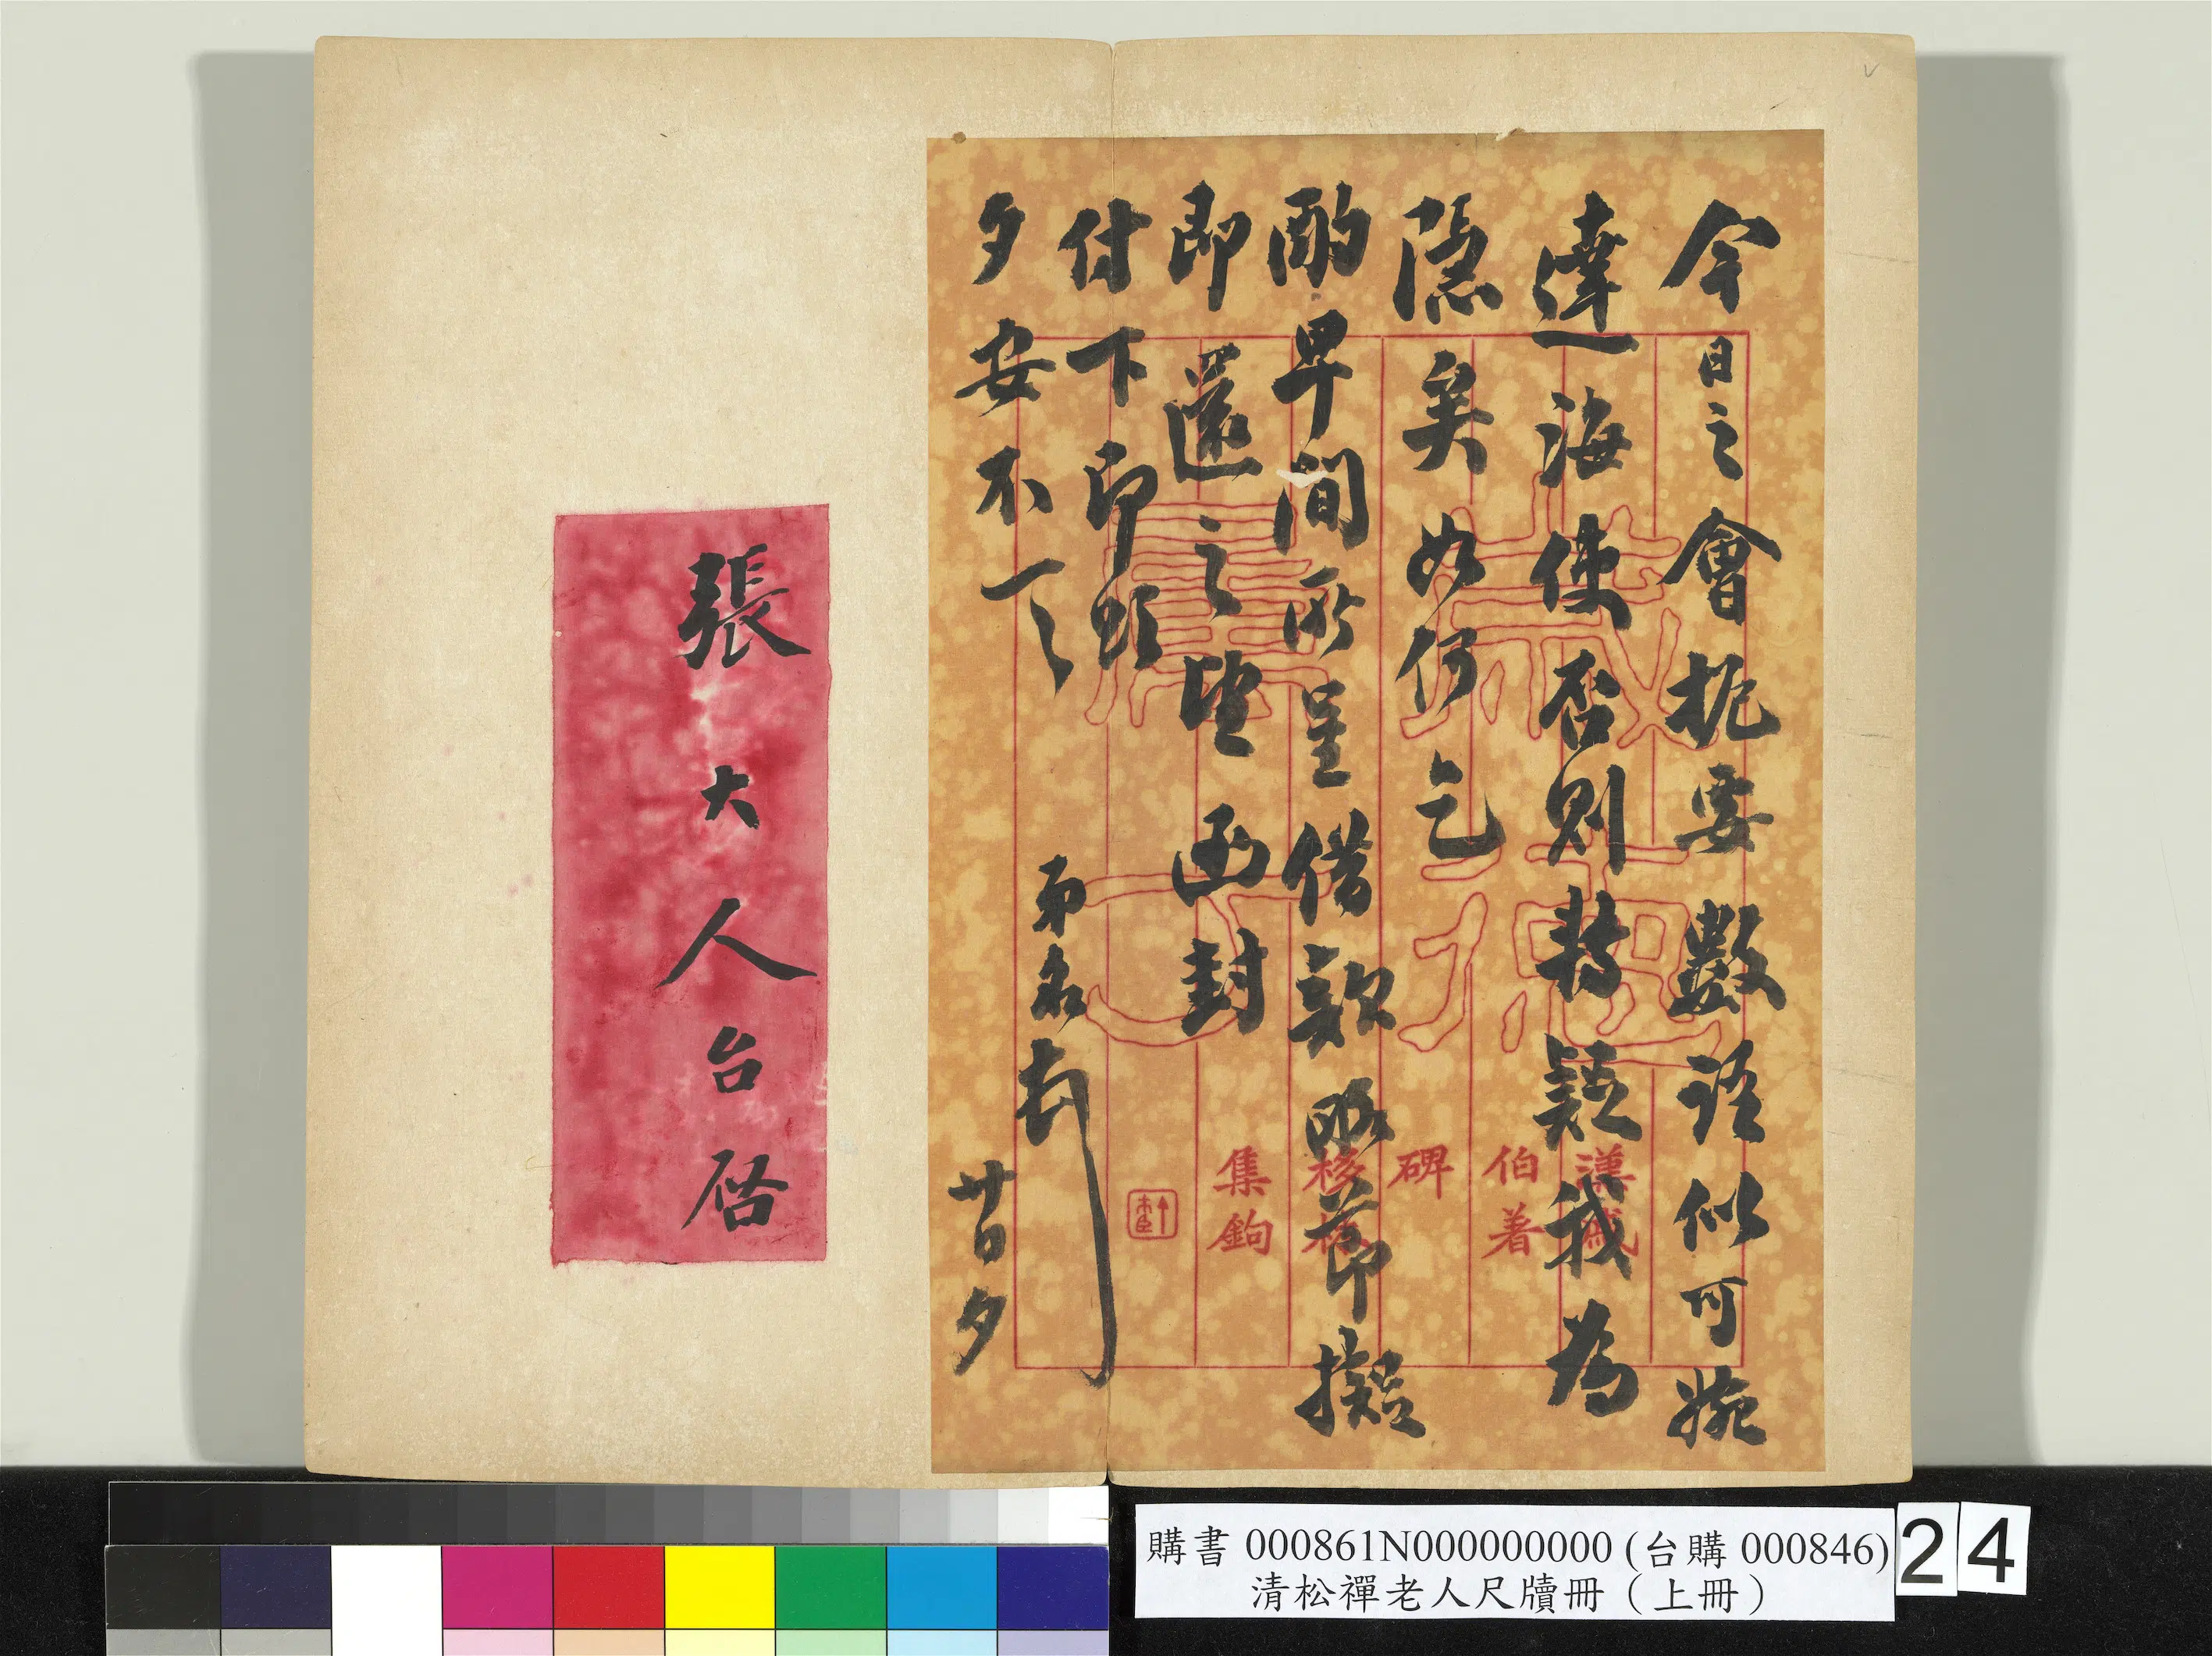 今日之會扼要數語似可婉
達海使否則轉疑我為
隱矣如何乞
酌早間所呈借款略節擬
即還之望函封
付下即頌
夕安不一一
弟名頓
夕
漢戚
伯著
碑
集鉤
張大人台启
購書 000861N000000000 (台購 000846)
清松禪老人尺牘冊（上冊）
24